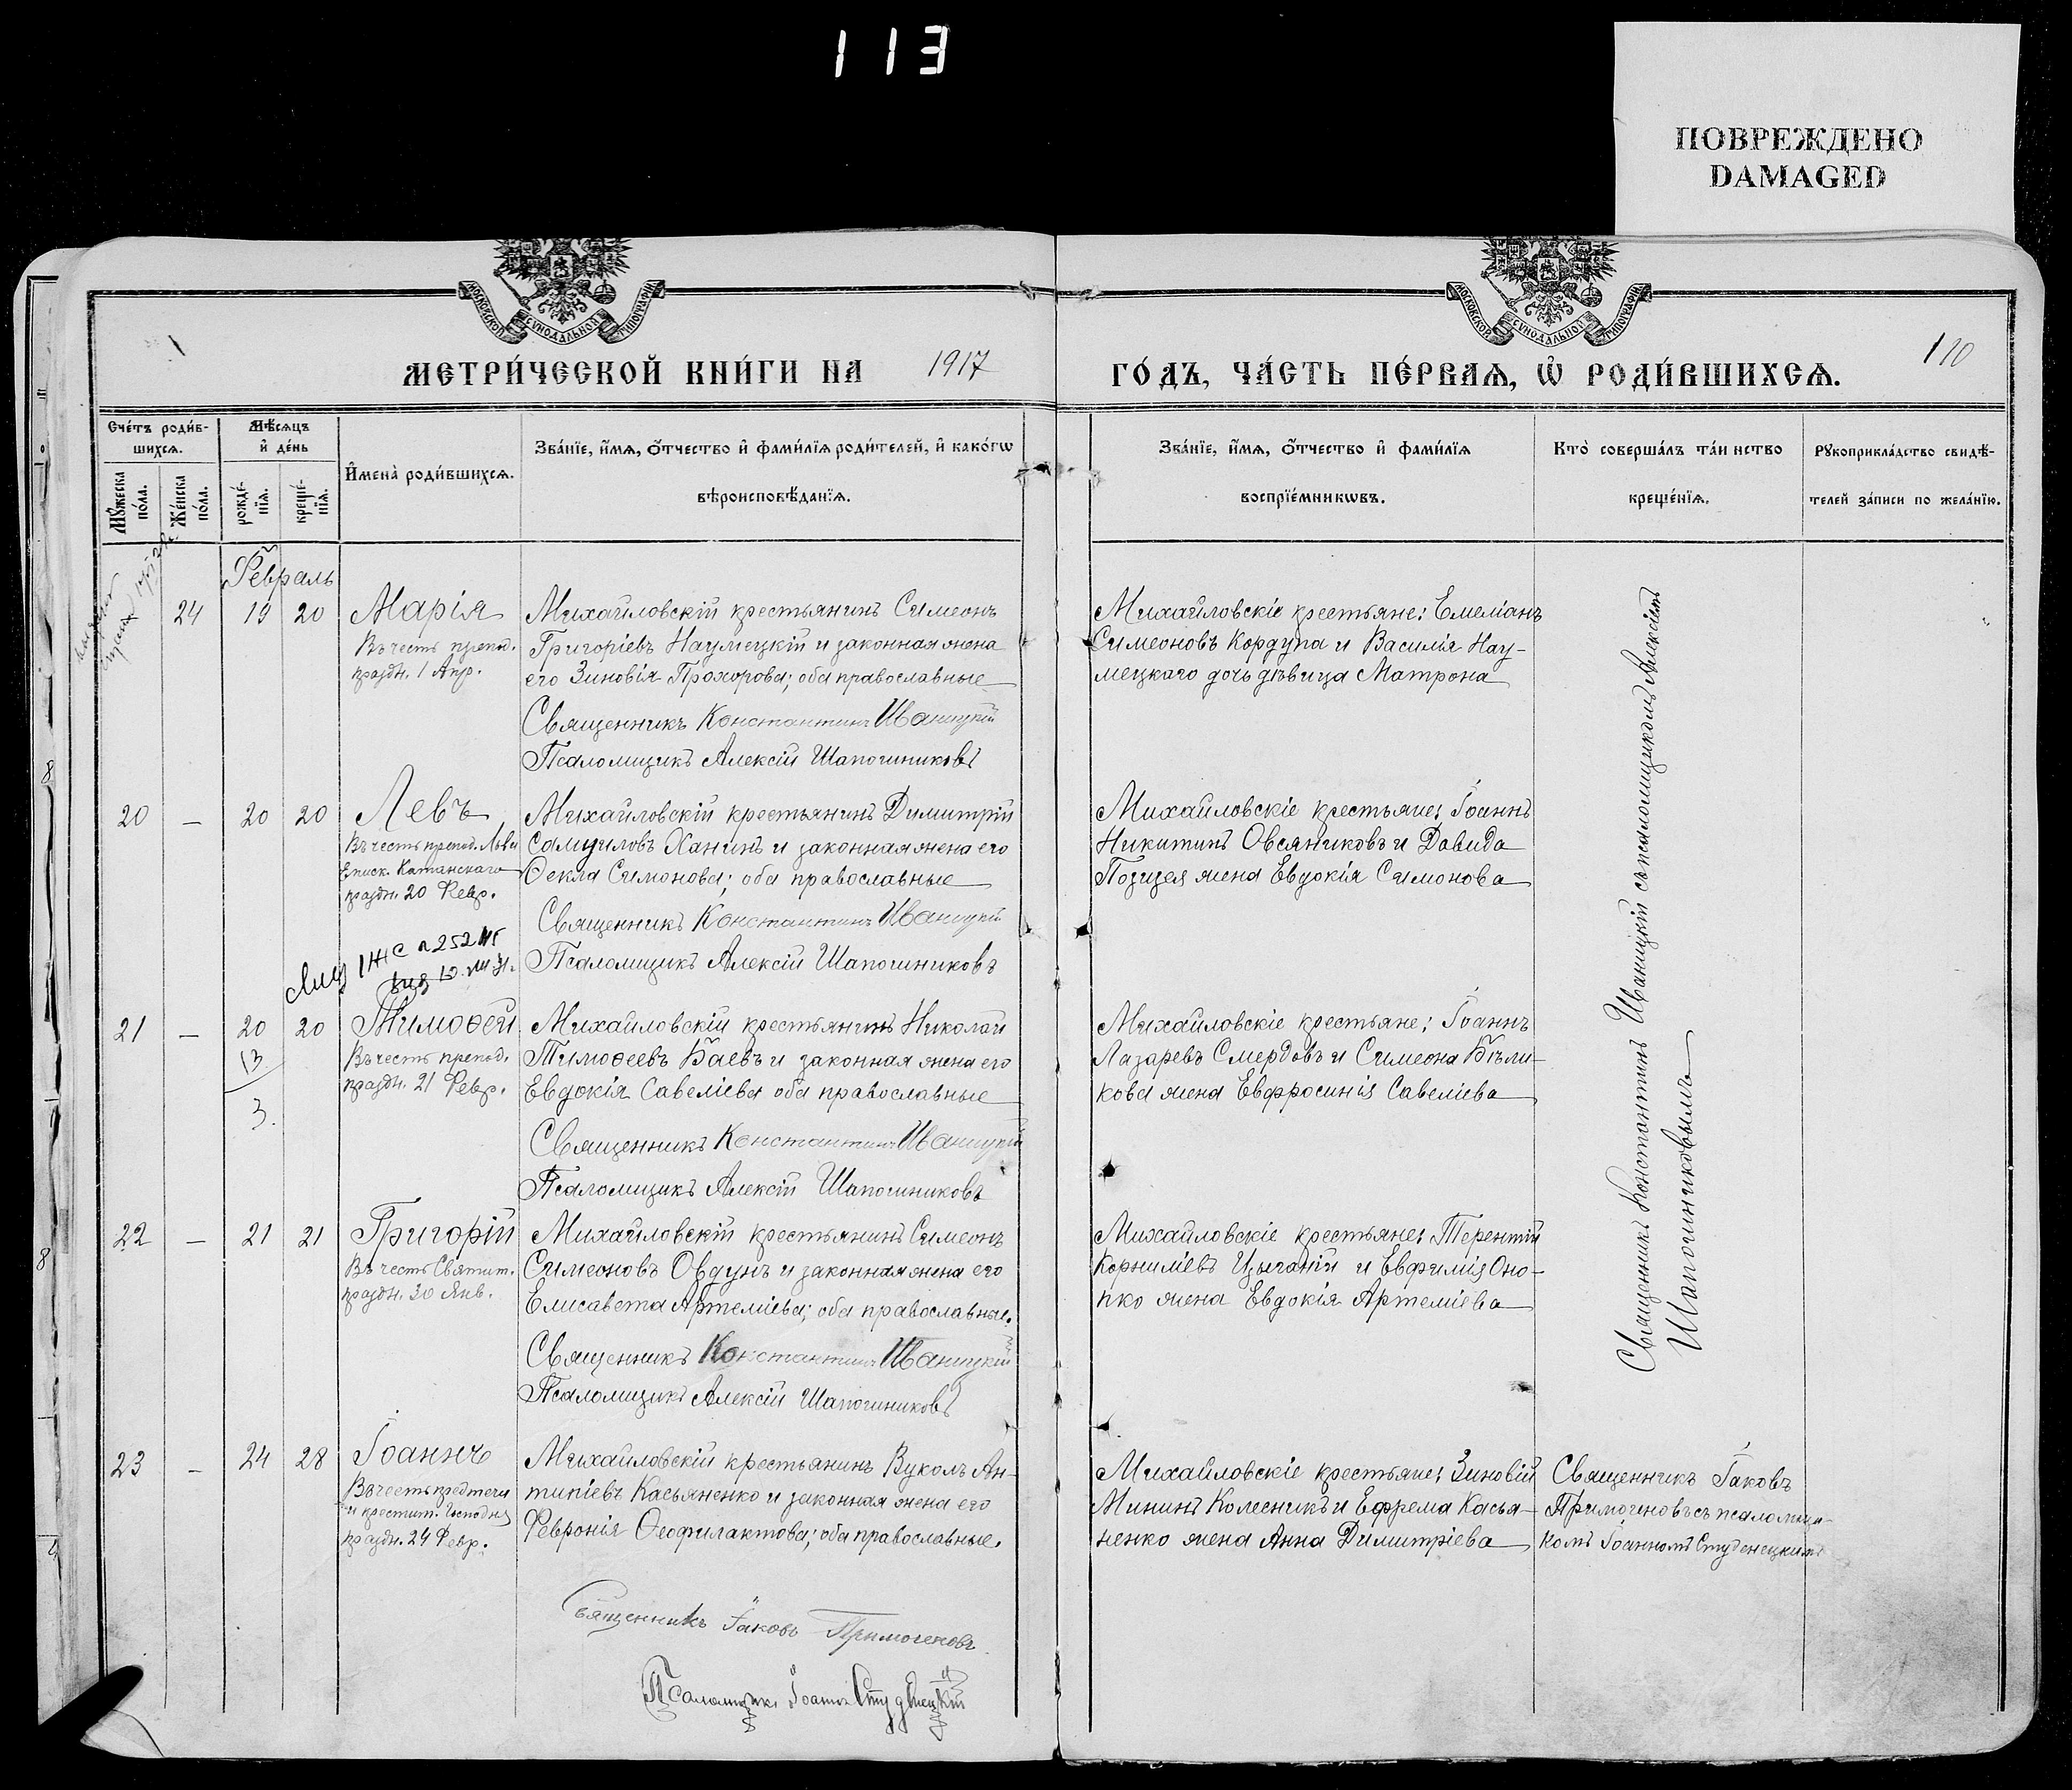 113
ПОВРЕЖДЕНО
DAMAGED
МОСКОВСКОЙ СѴНОДАЛЬНОЙ ТИПОГРАФИИ
МОСКОВСКОЙ СѴНОДАЛЬНОЙ ТИПОГРАФИИ
МЕТРИ́ЧЕСКОЙ КНИ́ГИ НА 1917
ГО́ДЪ, ЧА́СТЬ ПЕ́РВАѦ, Ѡ҆ РОДИ́ВШИХСѦ.
110
Сче́тъ роди́в-
шихсѧ.
Мꙋ́жеска по́ла.
Же́нска по́ла.
Мѣ́сѧцъ
и҆ де́нь
рожде́-
нїѧ.
креще́-
нїѧ.
И҆мена̀ роди́вшихсѧ.
Зва́нїе, и҆́мѧ, ѻ҆́тчество и҆ фами́лїѧ роди́телей, и҆ како́гѡ
вѣроисповѣ́данїѧ.
Зва́нїе, и҆́мѧ, ѻ҆́тчество и҆ фами́лїѧ
воспрїе́мникѡвъ.
Кто̀ соверша́лъ та́инство
креще́нїѧ.
Рꙋкоприкла́дство свидѣ́-
телей за́писи по жела́нїю.
Февраль
24 19 20 Марія
Въ честь препод.
праздн. 1 Апр.
Михайловскій крестьянинъ Симеонъ
Григоріевъ Наумецкій и законная жена
его Зиновія Прохорова; оба православные
Священникъ Константинъ Иваницкій
Псаломщикъ Алексій Шапошниковъ
Михайловскіе крестьяне: Емеліанъ
Симеоновъ Кордупа и Василія Нау-
мецкаго дочь дѣвица Матрона
20 — 20 20 Левъ
Въ честь препод. Льва
Еписк. Катанскаго
праздн. 20 Февр.
Михайловскій крестьянинъ Димитрій
Самуиловъ Ханинъ и законная жена его
Ѳекла Симонова; оба православные
Священникъ Константинъ Иваницкій
Псаломщикъ Алексій Шапошниковъ
Михайловскіе крестьяне: Іоаннъ
Никитинъ Овсяниковъ и Давида
жена Евдокія Симонова
21 — 20 20 Тимоѳей
13
3.
Въ честь препод.
праздн. 21 Февр.
Михайловскій крестьянинъ Николай
Тимоѳеевъ Баевъ и законная жена его
Евдокія Савеліева оба православные
Священникъ Константинъ Иваницкій
Псаломщикъ Алексій Шапошниковъ
Михайловскіе крестьяне: Іоаннъ
Лазаревъ Смердовъ и Симеона Бѣли-
кова жена Евфросинія Савеліева
22 — 21 21 Григорій
Въ честь Святит.
праздн. 30 Янв.
Михайловскій крестьянинъ Симеонъ
Симеоновъ Овдунъ и законная жена его
Елисавета Артеміева; оба православные.
Священникъ Константинъ Иваницкій
Псаломщикъ Алексій Шапошниковъ
Михайловскіе крестьяне: Терентій
Корниліевъ Цыганій и Евфимія Оно-
пко жена Евдокія Артеміева
Священникъ Константинъ Иваницкій съ псаломщикомъ Алексіемъ
Шапошниковымъ
23 — 24 28 Іоаннъ
Въ честь предтечи
и крестит. Господня
праздн. 24 Февр.
Михайловскій крестьянинъ Вуколъ Ан-
типіевъ Касьяненко и законная жена его
Февронія Ѳеофилактова; оба православные.
Священникъ Іаковъ Примогеновъ
Псаломщикъ Іоаннъ Студенецкій
Михайловскіе крестьяне: Зиновій
Мининъ Колесникъ и Ефрема Касья-
ненко жена Анна Димитріева
Священникъ Іаковъ
Примогеновъ съ псаломщи-
комъ Іоанномъ Студенецкимъ